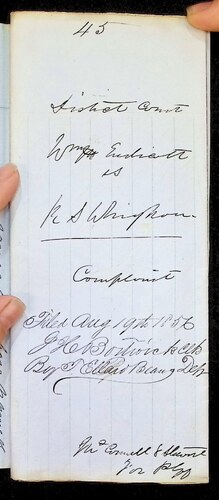 45
District Court
Wm H Endicott
vs
K S Whigham
Complaint
Filed Aug 19th 1856
J H Bostwick Clk
By T Ellard Beans Dep
McConnell & Stewart
for Plff